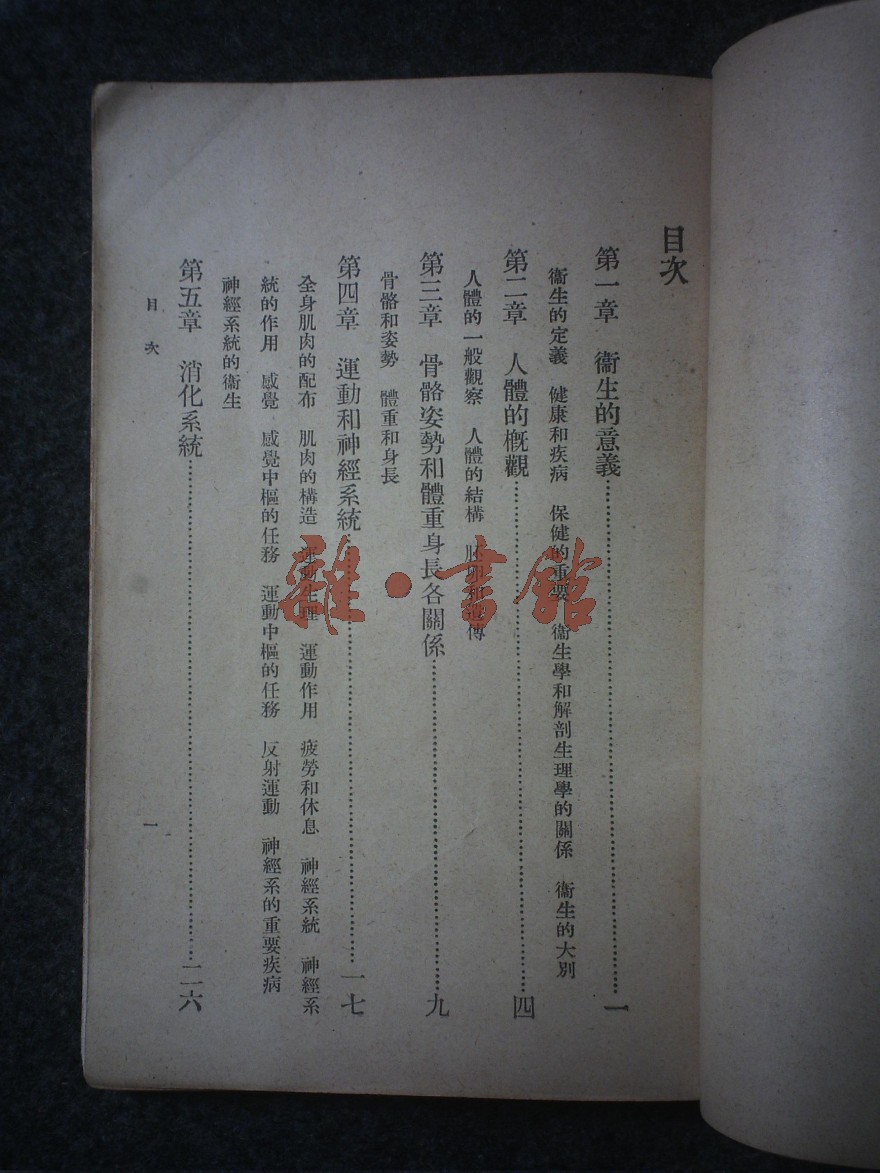 目次
第一章　衞生的意義…………一
衞生的定義　健康和疾病　保健的重要　衞生學和解剖生理學的關係　衞生的大別
第二章　人體的概觀…………四
人體的一般觀察　人體的結構　胚卵和遺傳
第三章　骨骼姿勢和體重身長各關係…………九
骨骼和姿勢　體重和身長
第四章　運動和神經系統…………一七
全身肌肉的配布　肌肉的構造　運動生理　運動作用　疲勞和休息　神經系統　神經系
統的作用　感覺　感覺中樞的任務　運動中樞的任務　反射運動　神經系的重要疾病
神經系統的衞生
第五章　消化系統…………二六
目次　一
雜·書館